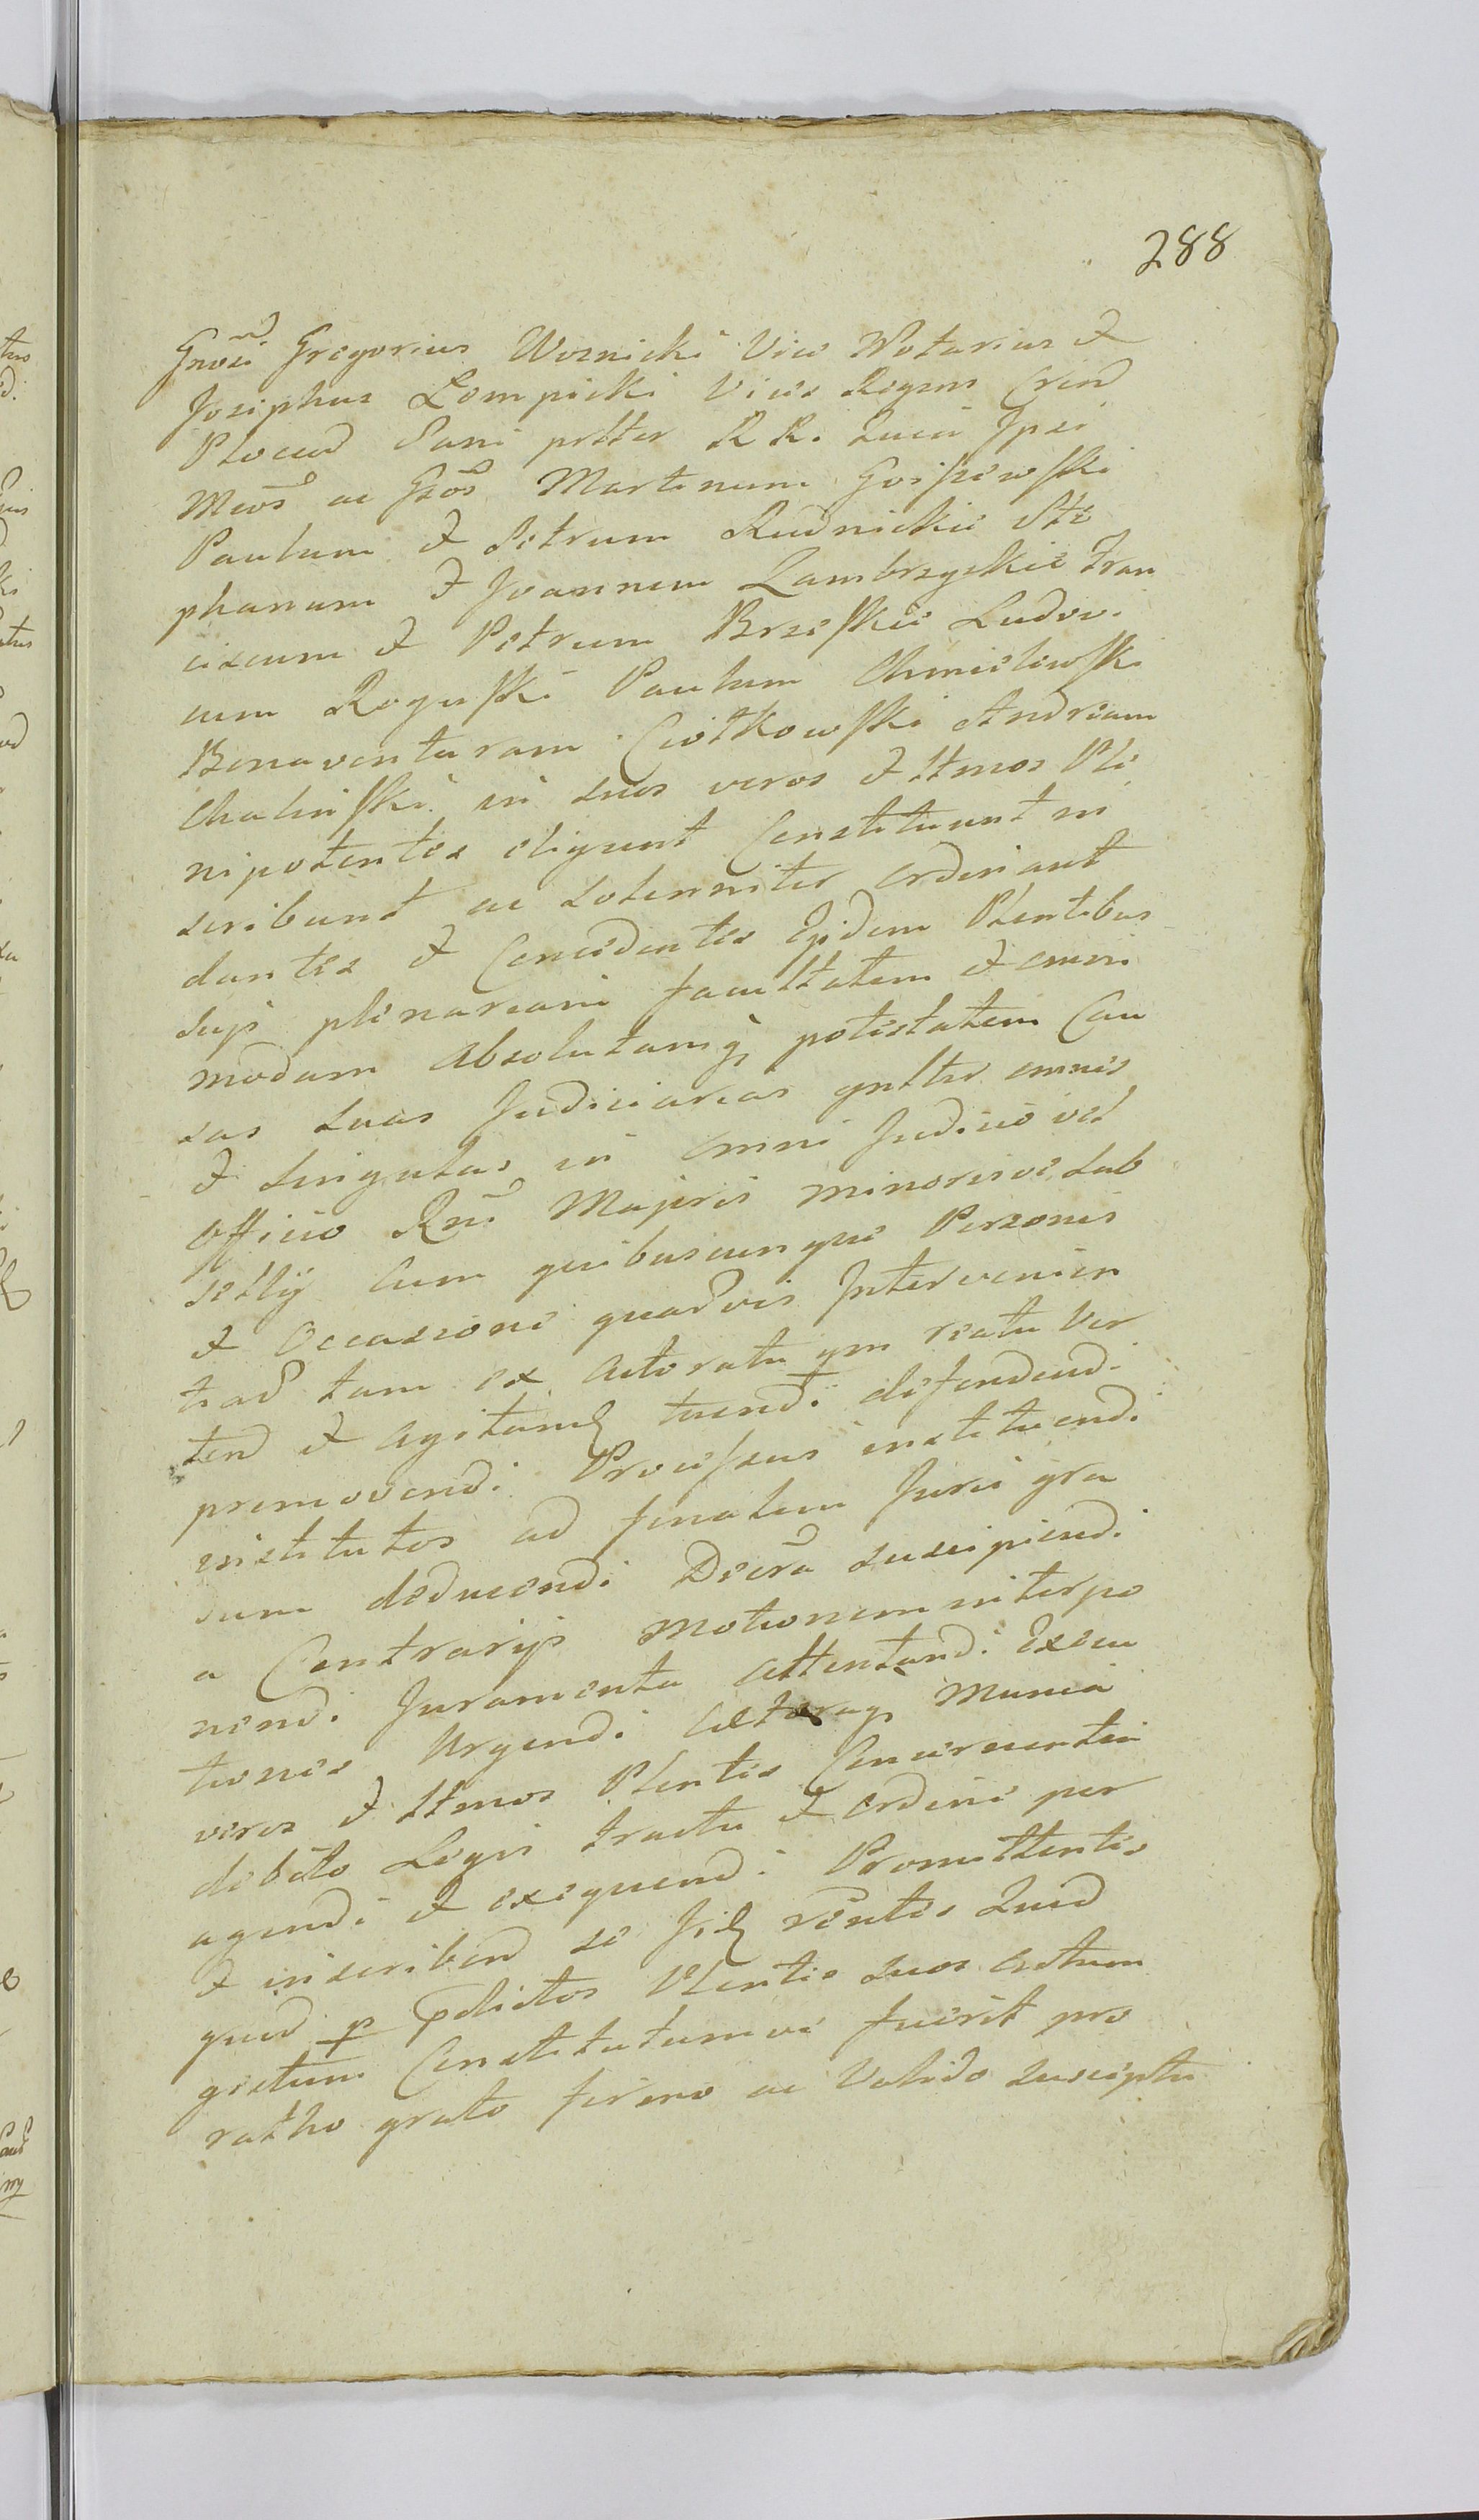 288
Gnosi Gregorius Woznicki Vice Notarius et
Josephus Lempicki Vices Regens Cren
Plocen Sani prtter RR. Quia Ipsi
Mcos ac Gsos Martinum Goiszewski
Paulum et Petrum Rudnickie Ste
phanum et Joannem Zambrzyckie Fran
ciscum et Petrum Brzeskie Ludovi
cum Roguski Paulum Chmielewski
Bonaventuram Ciołkowski Andream
Chalinski in suos veros et ltmos Ple
nipotentes eligunt Constituunt in
scribunt ac Solenniter ordinant
dantes et Concedentes Ijsdem Plentibus
suis plenariam facultatem et omni
modam Absolutamq potestatem Cau
sas suas Judiciarias gnlter omnes
et singulas in omni Judicio vel
officio Rni Majoris minorisve sub
sellij Cum quibuscunque Personis
et Occasione quadvis Intervenien
trad tam ex Actoratu qm reatu Ver
ten et Agitand tuendi defendendi
promovendi Processus instituendi
institutos ad finalem Juris gra
dum deducendi Decra suscipiendi
a Contrarijs Motionem interpo
nendi Juramenta Attentandi Execu
tiones Urgendi Cæteraq Munia
veros et ltmos Plentes Concernentia
debito Legis tractu et ordine per
agendi et exequendi Promittentes
et inscriben se sid rentes Quid
quid p pdictos Plentes suos Actum
gestum Constitutumve fuerit pro
ratho grato firmo ac Valido susceptu